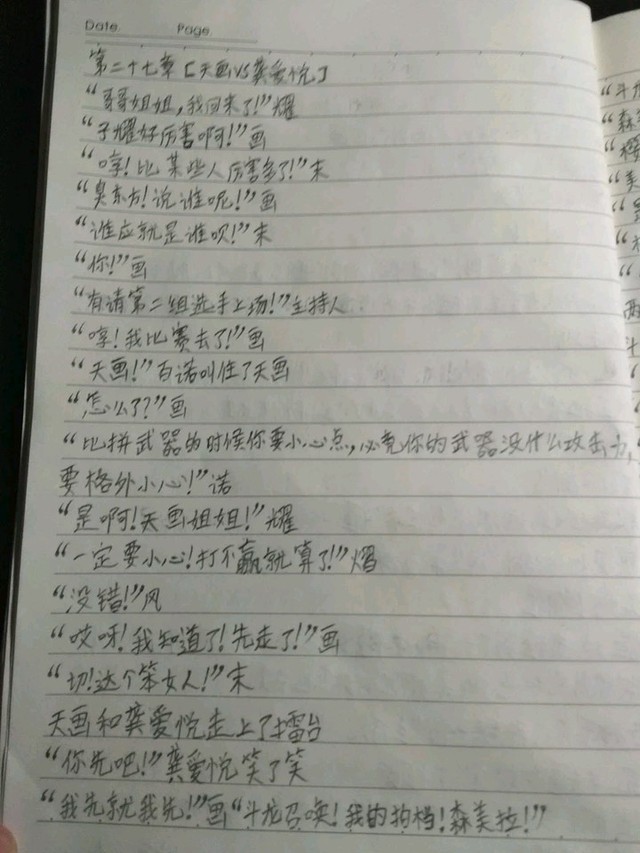 Date.
Page.
第二十七章【天画VS龚爱悦】
“哥哥姐姐,我回来了!”耀
“子耀好厉害啊!”画
“哼!比某些人厉害多了!”末
“臭东方!说谁呢!”画
“谁应就是谁呗!”末
“你!”画
“有请第二组选手上场!”主持人
“哼!我比赛去了!”画
“天画!”百诺叫住了天画
“怎么了?”画
“比拼武器的时候你要小心点,必竟你的武器没什么攻击力,
要格外小心!”诺
“是啊!天画姐姐!”耀
“一定要小心!打不赢就算了!”熠
“没错!”风
“哎呀!我知道了!先走了!”画
“切!这个笨女人!”末
天画和龚爱悦走上了擂台
“你先吧!”龚爱悦笑了笑
“我先就我先!”画“斗龙召唤!我的拍档!森美拉!”